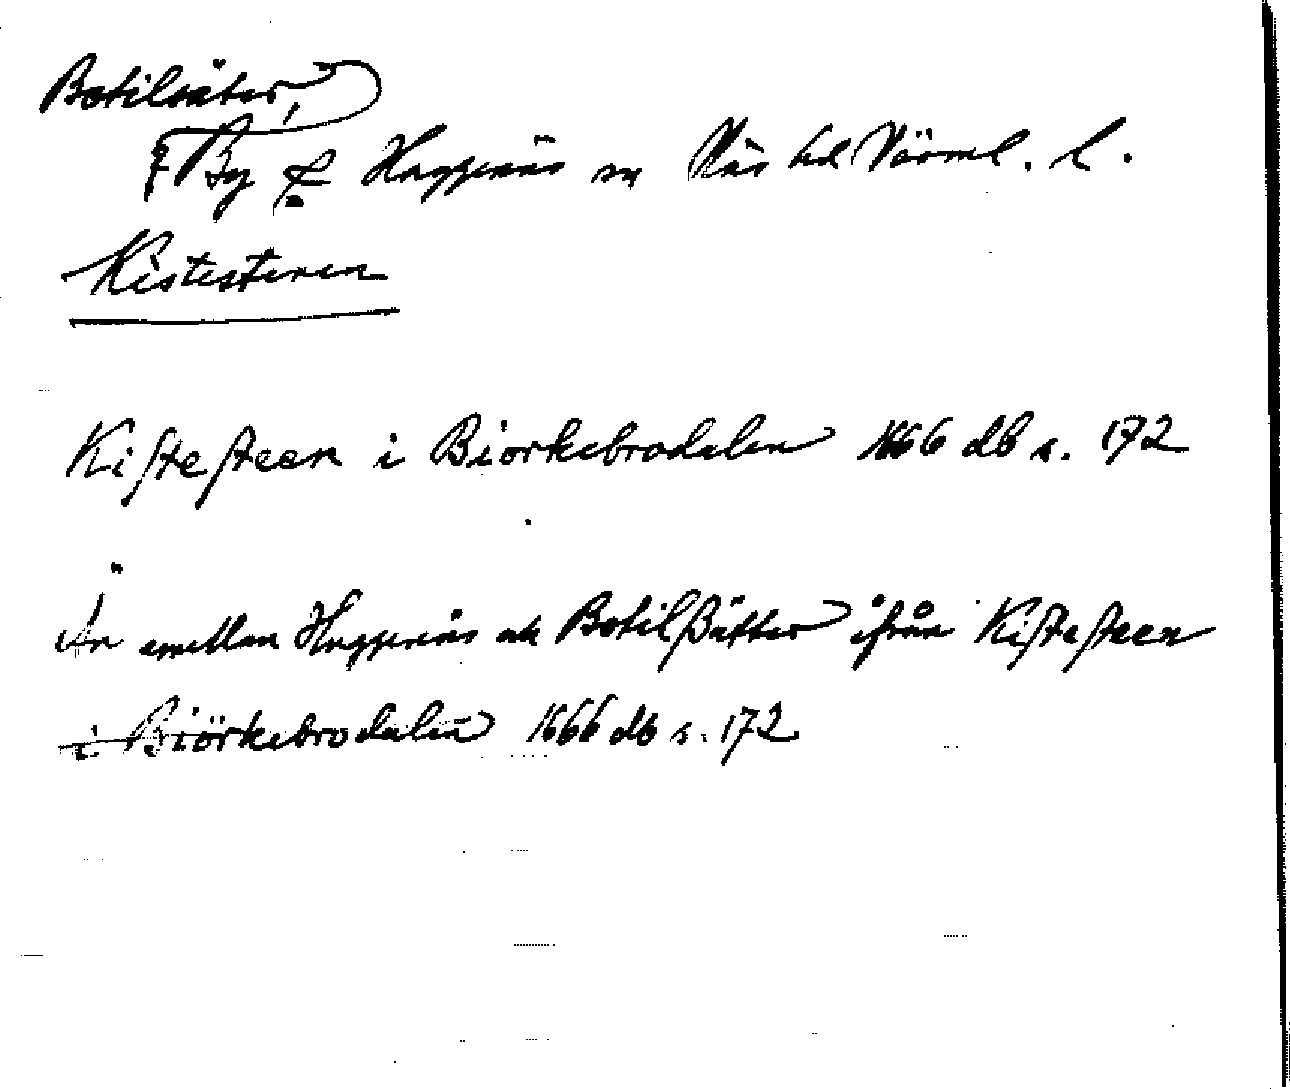 Botilsäter,
By & Huggenäs sn Näs hd Värml. l.
Kistesteren
Kistesteen i Biorkebrodalen 1666 db s. 172
Än emellan Huggenäs ok Botilßätter ifrån Kistesteen
i Biörkebrodalen 1666 db s. 172